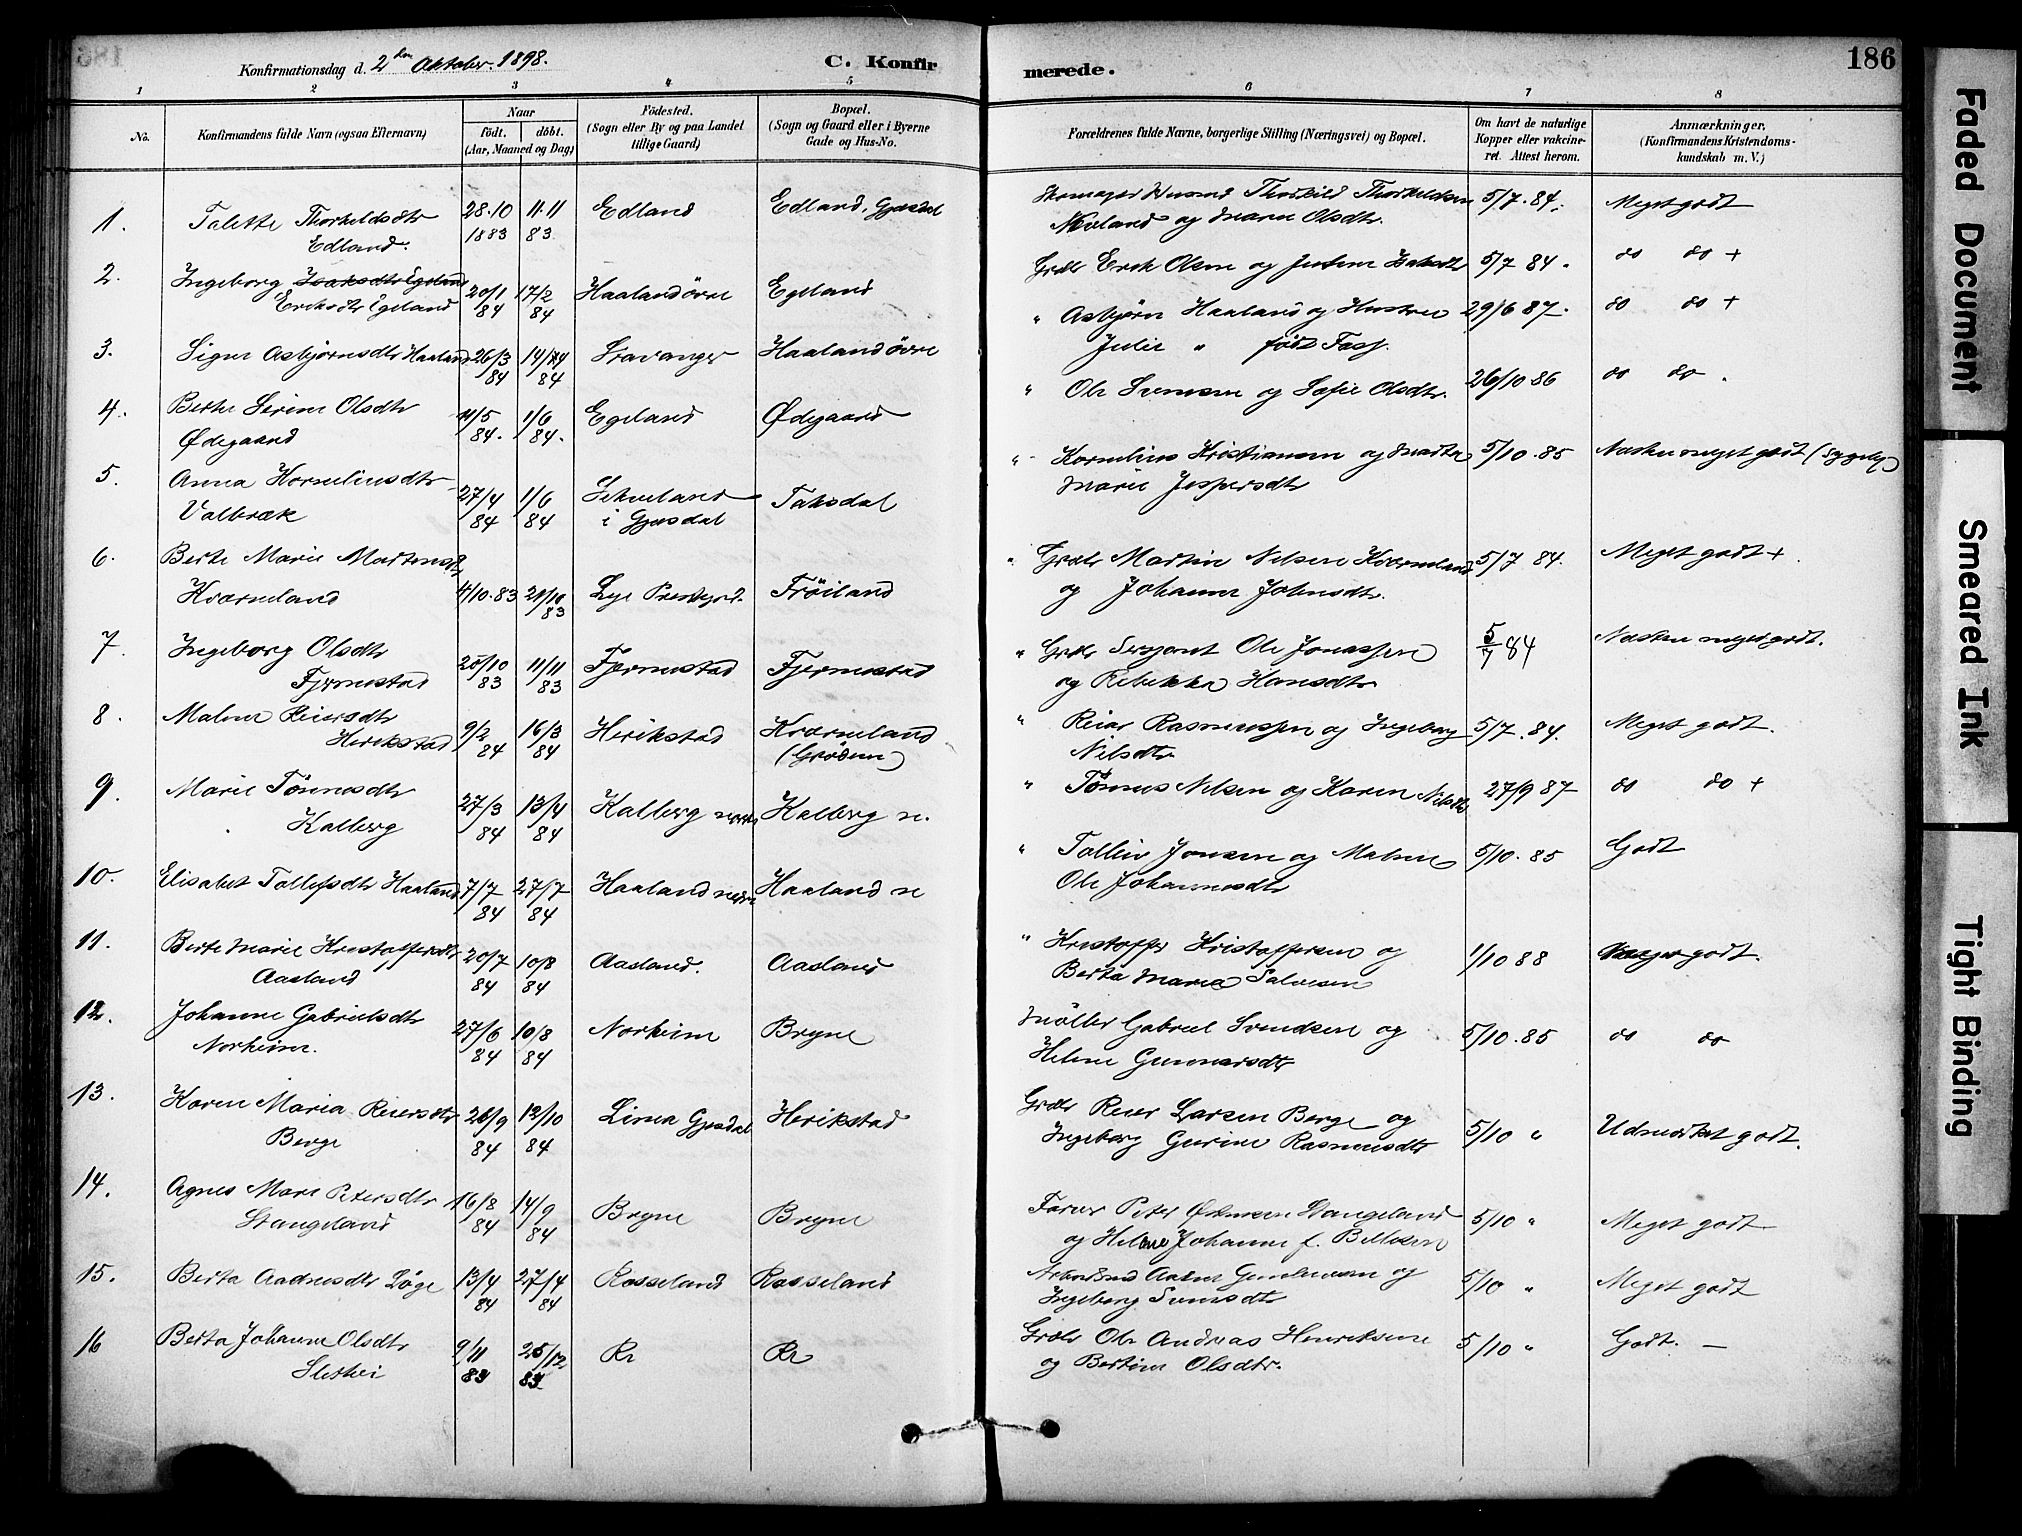 186
Konfirmationsdag d. 2den Oktober. 1898.
C. Konfirmerede.
1 2 3 4 5 6 7 8
No.
Konfirmandens fulde Navn (ogsaa Efternavn)
Naar
födt. döbt.
(Aar, Maaned og Dag)
Födested.
(Sogn eller By og paa Landet
tillige Gaard)
Bopæl.
(Sogn og Gaard eller i Byerne
Gade og Hus-No.
Forældrenes fulde Navne, borgerlige Stilling (Næringsvei) og Bopæl.
Om havt de naturlige
Kopper eller vakcine-
ret. Attest herom.
Anmærkninger.
(Konfirmandens Kristendoms-
kundskab m. V.)
1. Talette Thorkeldsdtr Edland. 28.10 1883 11.11 83 Edland Edland, Gjesdal
Thorkild Thorkeldsen og Maren Olsdtr. 5/7.84. Meget godt
2. Ingeborg Isaksdtr Egeland Eriksdtr Egeland 20/1 84 17/2 84 Haaland övre Egeland
Grdbr Erik Olsen og 5/7 84. do do +
3. Signe Asbjörnsdtr Haaland 26/3 84 84 Stavanger Haaland övre
" Asbjörn Haaland og Hustru Julie " født 29/6 87. do do +
4. Berte Serine Olsdtr Ødegaard 84. 1/6 84. Egeland Ødegaard
" Ole Svensen og Sofie Olsdtr. 26/10 86 do do.
5. Anna Kornelinsdtr Valbræk 27/4 84 1/6 84 i Gjesdal Taksdal
" Kornelius Kristiansen og Marta Marie Jespersdtr 5/10.85 Næsten meget godt
6. Berte Marie Martensdtr Kværneland 4/10.83 21/10 83 Lye Prestegd. Fröiland
" Grdbr Martin Nelsen Kværneland og Johanne Johnsdtr. 5/7 84. Meget godt +.
7. Ingeborg Olsdtr Fjermestad 25/10 83 11/11 83 Fjermestad Fjermestad
" Grdbr Sergeant Ole Jonassen og Rebekka Hansdtr 5/7 84 Næsten meget godt.
8. Malene Reiersdtr Herikstad 9/2 84 16/3 84 Herikstad Kværneland (Gröden)
" Reiar Rasmussen og Ingeborg Nilsdtr 5/7.84. Meget godt.
9. Marie Tönnesdtr Kalberg 27/3 84 13/4 84 Kalberg nedre Kalberg n.
" Tönnes Nelsen og Karen Nilsdtr 27/9 87 do do +
10. Elisabet Tollefsdtr Haaland 7/7 84 27/7 84 Haaland nedre Haaland n
" Tolleiv Jonsen og Malene Ole Johannesdtr 5/10.85 Godt
11. Berte Marie Kristoffersdtr Aasland 20/7 84 10/8 84 Aasland. Aasland
" Kristoffer Kristoffersen og Berta Maria Salvesen 1/10 88 godt.
12. Johanne Gabrielsdtr Norheim. 27/6 84 10/8 84 Norheim Bryne
Möller Gabriel Svendsen og Helene Gunnarsdtr 5/10.85 do do
13. Karen Maria Reiersdtr Berge 26/9 84 12/10 84 Lima Gjesdal Herikstad
Grdbr Reier Larsen Berge og Ingeborg Gurine Rasmusdtr 5/10 " Udmerket godt.
14. Agnes Marie Petersdtr Stangeland 16/8 84 14/9 84 Bryne Bryne
Farver Peter Stangeland og Helene Johanne f. 5/10 " Meget godt
15. Berta Aadnesdtr Löge 13/4 84 27/4 84 Rosseland Rosseland
og Ingeborg Svensdtr 5/10 " Meget godt
16 Berta Johanne Olsdtr Slethei 9/11 83 25/12 83 Re Re
Grdbr Ole Andreas Henriksen og Bertine Olsdtr. 5/10 " Godt. —
Faded Document
Smeared Ink
Tight Binding